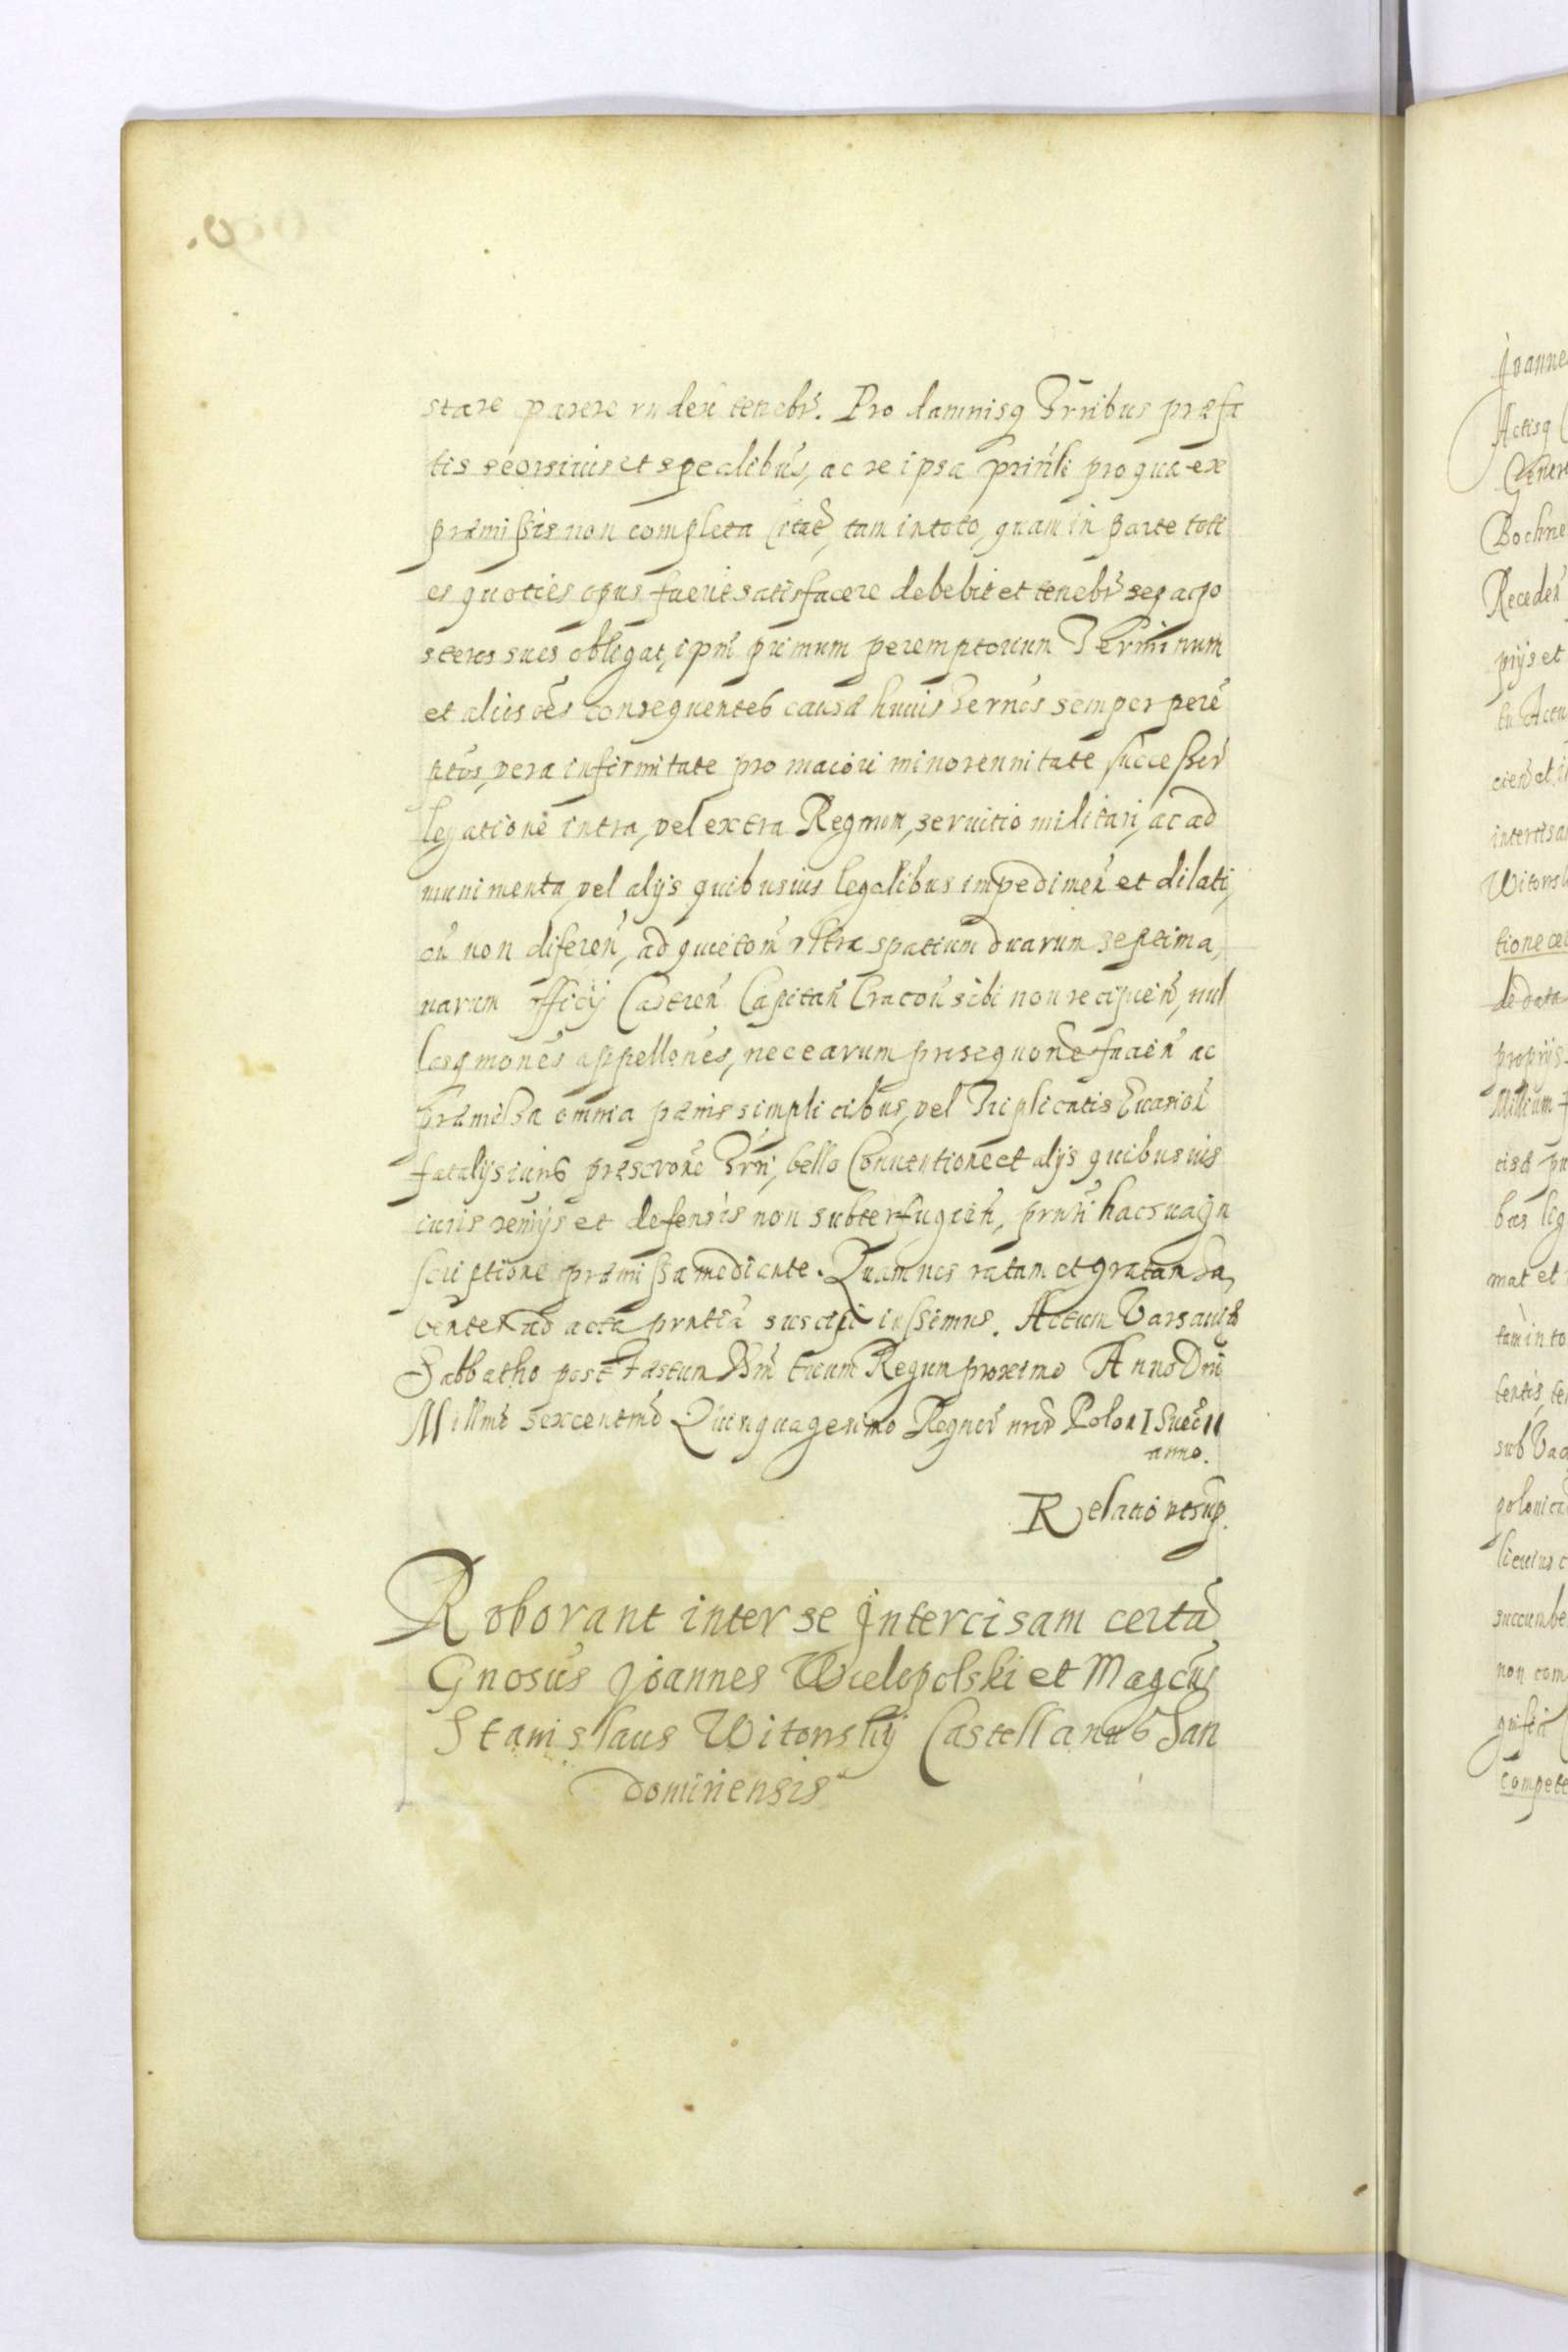 stare parere ruden tenebr. Pro damnisq Trnibus præfa
tis seorsiuis et spealibus, ac re ipsa prinli pro qua ex
præmissis non completa Citae, tam in toto, quam in parte toti
es quoties opus fuerit satisfacere debebit et tenebr seq acpo
steros suos obligat, ipm primum peremptorium Terminum
et alios oēs consequentes causæ huius Termos semper pere
ptos, vera infirmitate pro maiori minorennitate successor
legatione intra, vel extra Regnum, seruitio militari, ac ad
munimenta, vel alijs quibusuis legalibus impedimen et dilati,
on non diferen, ad quietom vltra spatium duarum septima,
narum officij Castren Capitan Cracou sibi non recipien, nul
lasq mones appellones, nec earum prosequone facien ac
præmissa omnia pænis simplicibus, vel Triplicatis
fatalijs iuris præscrone Trn, bello Conuentione et alijs quibusuis
iuris remijs et defensis non subterfugien, prnn hac sua In
scriptione præmissa mediante. Quam nos ratam et gratam ha,
bentes ad acta prntia suscipi iussimus. Actum Varsauiæ
Sabbatho post Festum Sstm trium Regum proximo Anno Dni
Millmo sexcentmo Quinquagesimo Regnor nror Polon I Suec II
anno.
Relatio vt sup.
Roborant inter se Intercisam certā
Gnosus Joannes Wielopolski et Magcus
Stanislaus Witowskij Castellanus San
domiriensis
Joanne
Actisq
Bochne
Receden
pijs et
Witowsk
tione
de data
propijs
Milium
tam in to
sub Vad
polonica
succumbe
non com
compete